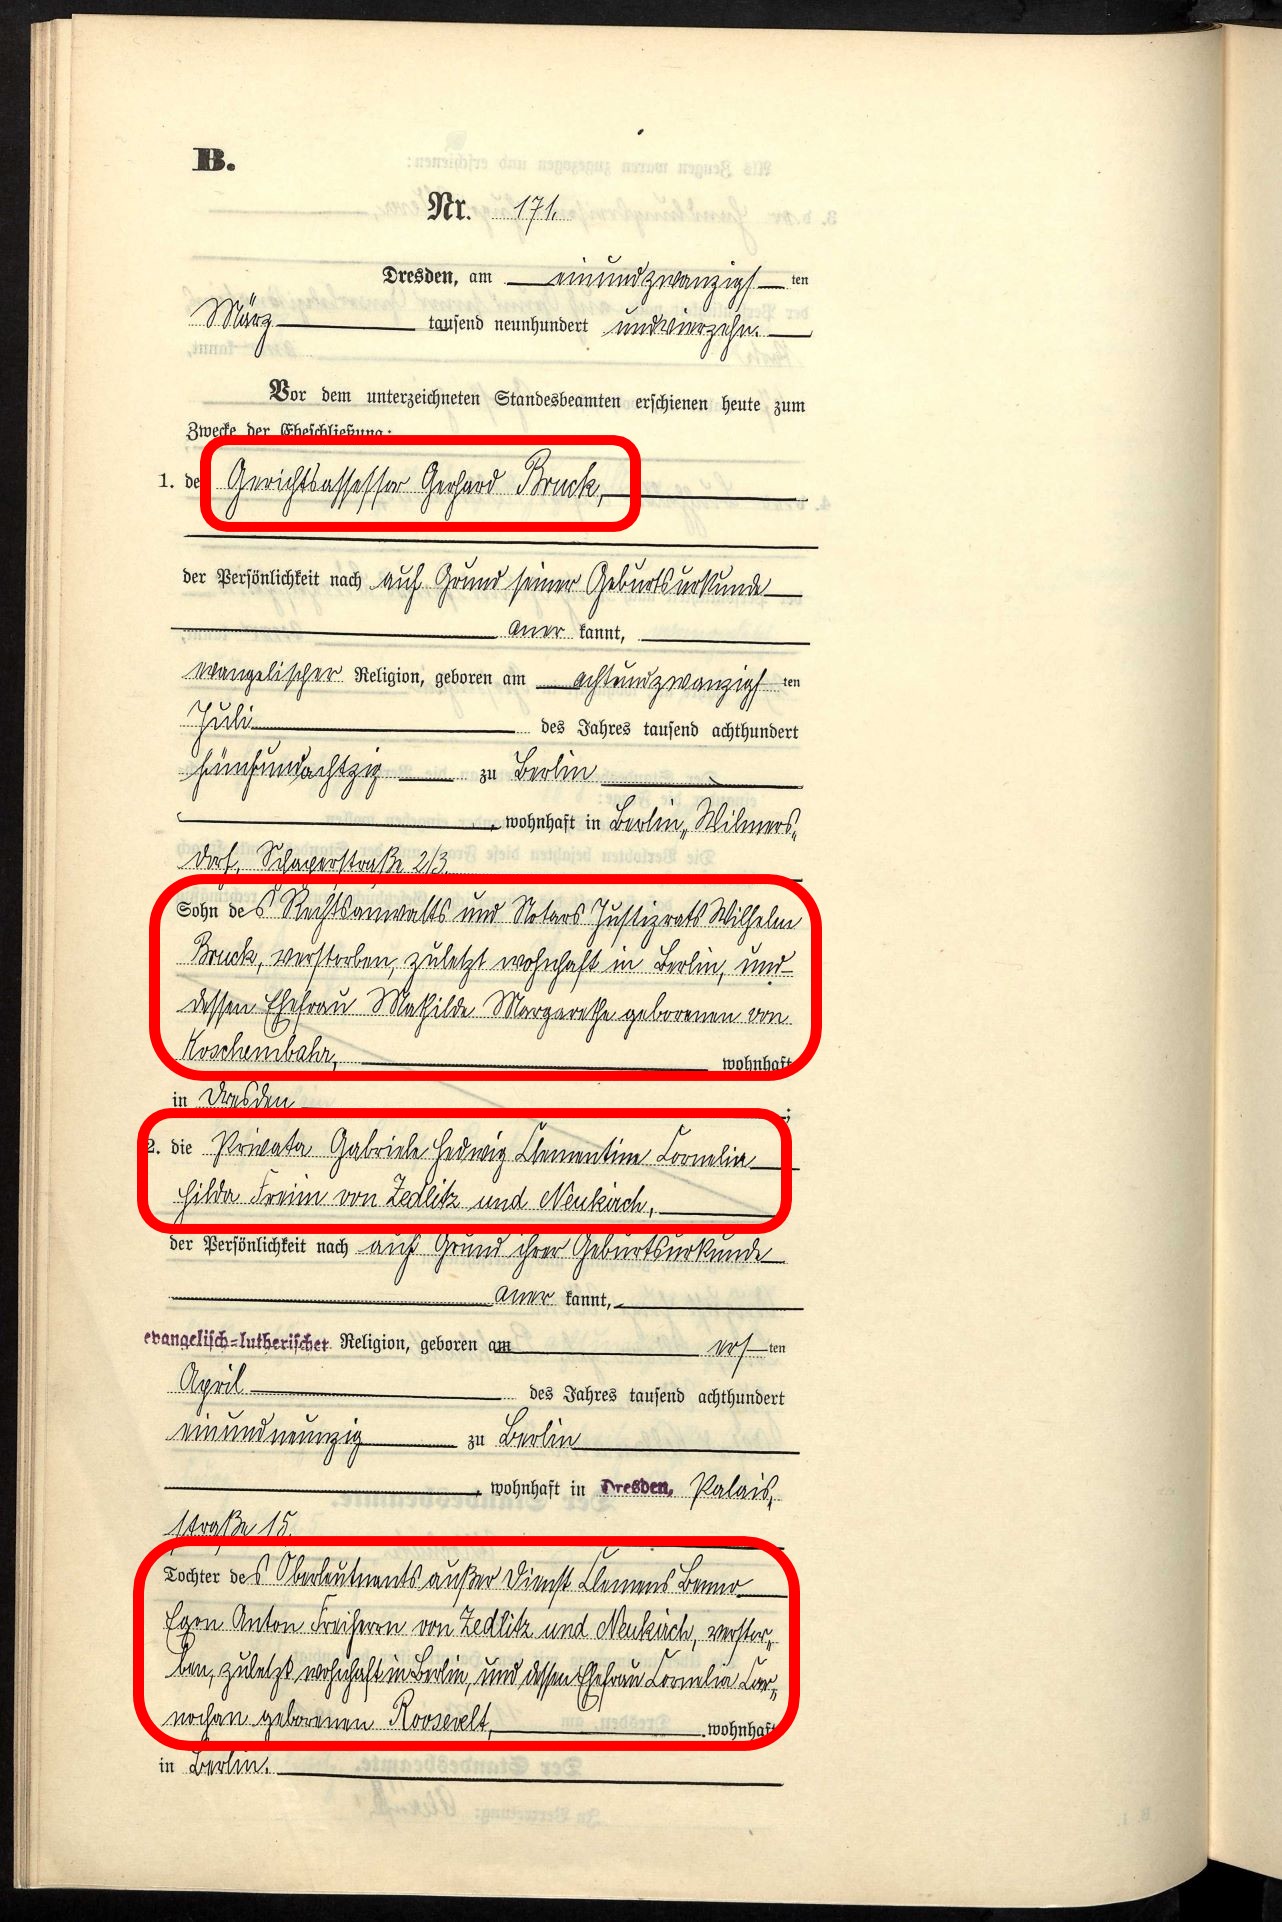 B.
Nr. 171.
Dresden, am einundzwanzigsten
März tausend neunhundert undvierzehn.
Vor dem unterzeichneten Standesbeamten erschienen heute zum
Zwecke der Eheschließung:
1. de Gerichtsassessor Gerhard Bruck,
der Persönlichkeit nach auf Grund seiner Geburtsurkunde
aner kannt,
evangelischer Religion, geboren am achtundzwanzigsten
Juli des Jahres tausend achthundert
fünfundachtzig zu Berlin
, wohnhaft in Berlin-Wilmers-
dorf, Schaperstraße 2/3.
Sohn des Rechtsanwalts und Notars Justizrats Wilhelm
Bruck, verstorben, zuletzt wohnhaft in Berlin, und
dessen Ehefrau Mathilde Margarethe geborenen von
Koschembahr, wohnhaft
in Dresden ;
2. die Privata Gabriele Hedwig Clementine Cornelia
Hilda Freiin von Zedlitz und Neukirch,
der Persönlichkeit nach auf Grund ihrer Geburtsurkunde
aner kannt,
evangelisch-lutherischer Religion, geboren am ersten
April des Jahres tausend achthundert
einundneunzig zu Berlin
, wohnhaft in Dresden, Palais-
straße 15.
Tochter des Oberleutnants außer Dienst Clemens Benno
Egon Anton Freiherrn von Zedlitz und Neukirch, verstor-
ben, zuletzt wohnhaft in Berlin, und dessen Ehefrau Cornelia Car-
nochan geborenen Roosevelt, wohnhaft
in Berlin.